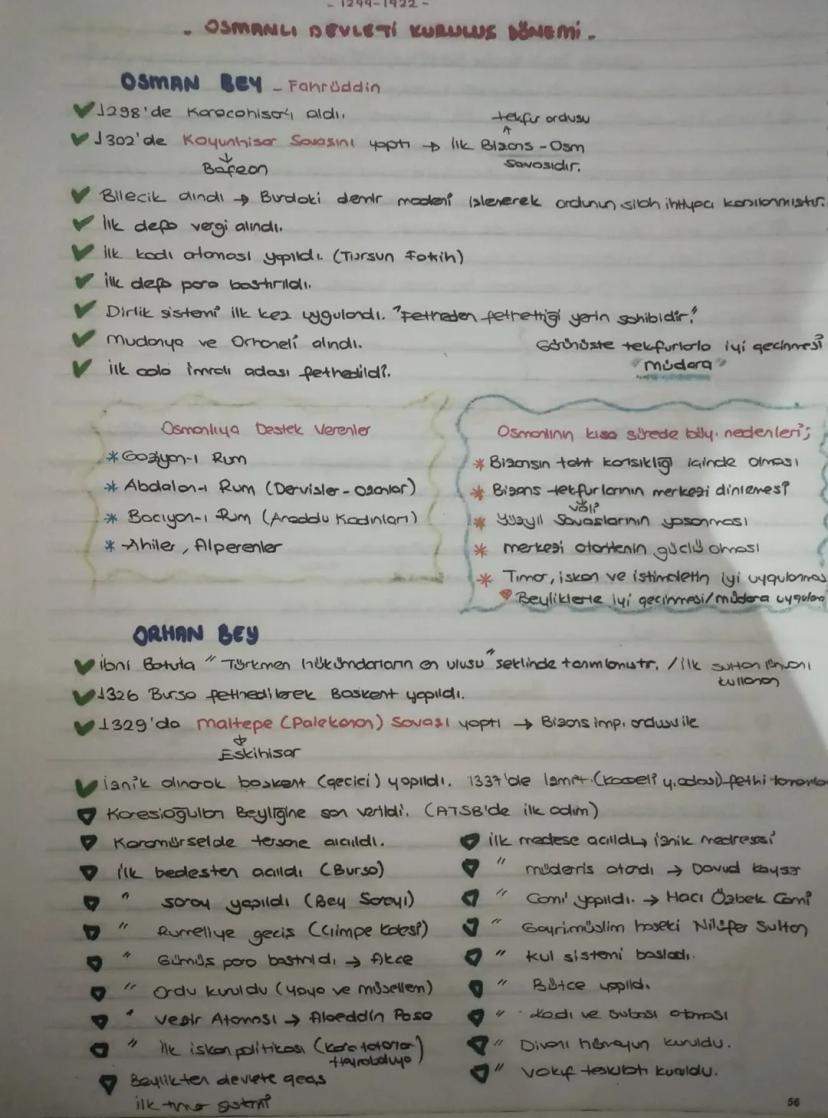 - 1299-1922 -
- OSMANLI DEVLETİ KURULUŞ DÖNEMİ -
OSMAN BEY - Fahrüddin
1298'de Karacahisar'ı aldı.
tekfur ordusu
1302'de Koyunhisar Savaşını yaptı → İlk Bizans - Osm
Bafeon
Savaşıdır.
Bilecik alındı → Burdaki demir madeni işlenerek ordunun silah ihtiyacı karşılanmıştır.
İlk defa vergi alındı.
İlk kadı ataması yapıldı. (Tursun Fakih)
İlk defa para bastırıldı.
Dirlik sistemi ilk kez uygulandı. "Fetheden fethettiği yerin sahibidir."
Mudanya ve Orhaneli alındı.
Görünüşte tekfurlarla iyi geçinmesi
"müdara"
İlk ada İmralı adası fethedildi.
Osmanlıya Destek Verenler
* Gaziyan-ı Rum
* Abdalan-ı Rum (Dervişler - Ozanlar)
* Bacıyan-ı Rum (Anadolu Kadınları)
* Ahiler, Alperenler
Osmanlının kısa sürede büy. nedenleri;
* Bizansın taht karışıklığı içinde olması
* Bizans tekfurlarının merkezi dinlemesi
vali
* Yüzyıl Savaşlarının yaşanması
* merkezi otoritenin güçlü olması
* Tımar, iskan ve istimaletin iyi uygulanması
Beyliklerle iyi geçinmesi/müdara uygulan
ORHAN BEY
İbni Batuta "Türkmen hükümdarların en ulusu" şeklinde tanımlamıştır. / İlk sultan ünvanı
kullanan
1326 Bursa fethedilerek Başkent yapıldı.
1329'da Maltepe (Palekanon) Savaşı yaptı → Bizans imp. ordusu ile
Eskihisar
İznik alınarak başkent (geçici) yapıldı. 1337'de İzmit (Kocaeli y.adası) fethi tamamla
Karesioğulları Beyliğine son verildi. (ATSB'de ilk adım)
Karamürselde tersane açıldı.
İlk bedesten açıldı (Bursa)
" saray yapıldı (Bey Sarayı)
" Rumeliye geçiş (Çimpe Kalesi)
" Gümüş para bastırıldı → Akçe
" Ordu kuruldu (yaya ve müsellem)
" Vezir Ataması → Alaeddin Paşa
" İlk iskan politikası
Hayrabolu
Beylikten devlete geçiş
İlk tımar sistemi
İlk medrese açıldı → İznik medresesi
" müderris atandı → Davud Kayser
" Cami yapıldı. → Hacı Özbek Cami
" Gayrimüslim haseki Nilüfer Sultan
" Kul sistemi başladı.
" Bütçe yapıldı.
" Kadı ve Subaşı ataması
" Divanı hümayun kuruldu.
" Vakıf teşkilatı kuruldu.
56